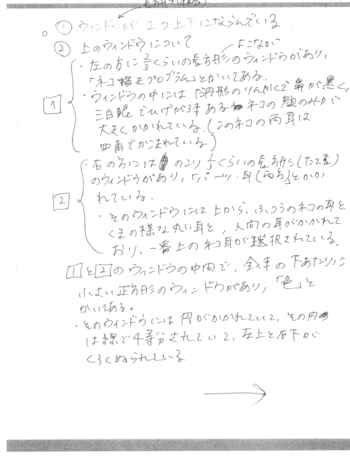 ① ウィンドウが2つ上下にならんでいる
② 上のウィンドウについて
よこなが
・左の方に2/3くらいの長方形のウィンドウがあり、
「ネコ描きプログラム」とかいてある。
1
・ウィンドウの中には りんかくで鼻が黒く、
三白眼でひげが3本あるネコの顔のみが
大きくかかれている。(このネコの両耳は
四角でかこまれている)
・右の方にはのこり1/3くらいの長方形(たて長)
のウィンドウがあり、「パーツ・耳(両方)」とかか
れている。
2
・そのウィンドウには上から、ふつうのネコの耳と
くまの様な丸い耳と、人間の耳がかかれて
おり、一番上のネコ耳が選択されている。
1と2のウィンドウの中間で、全体の下あたりに
小さい正方形のウィンドウがあり、「色」と
かいてある。
・そのウィンドウには円がかかれていて、その円
は線で4等分されていて、左上と右下が
くろくぬられている